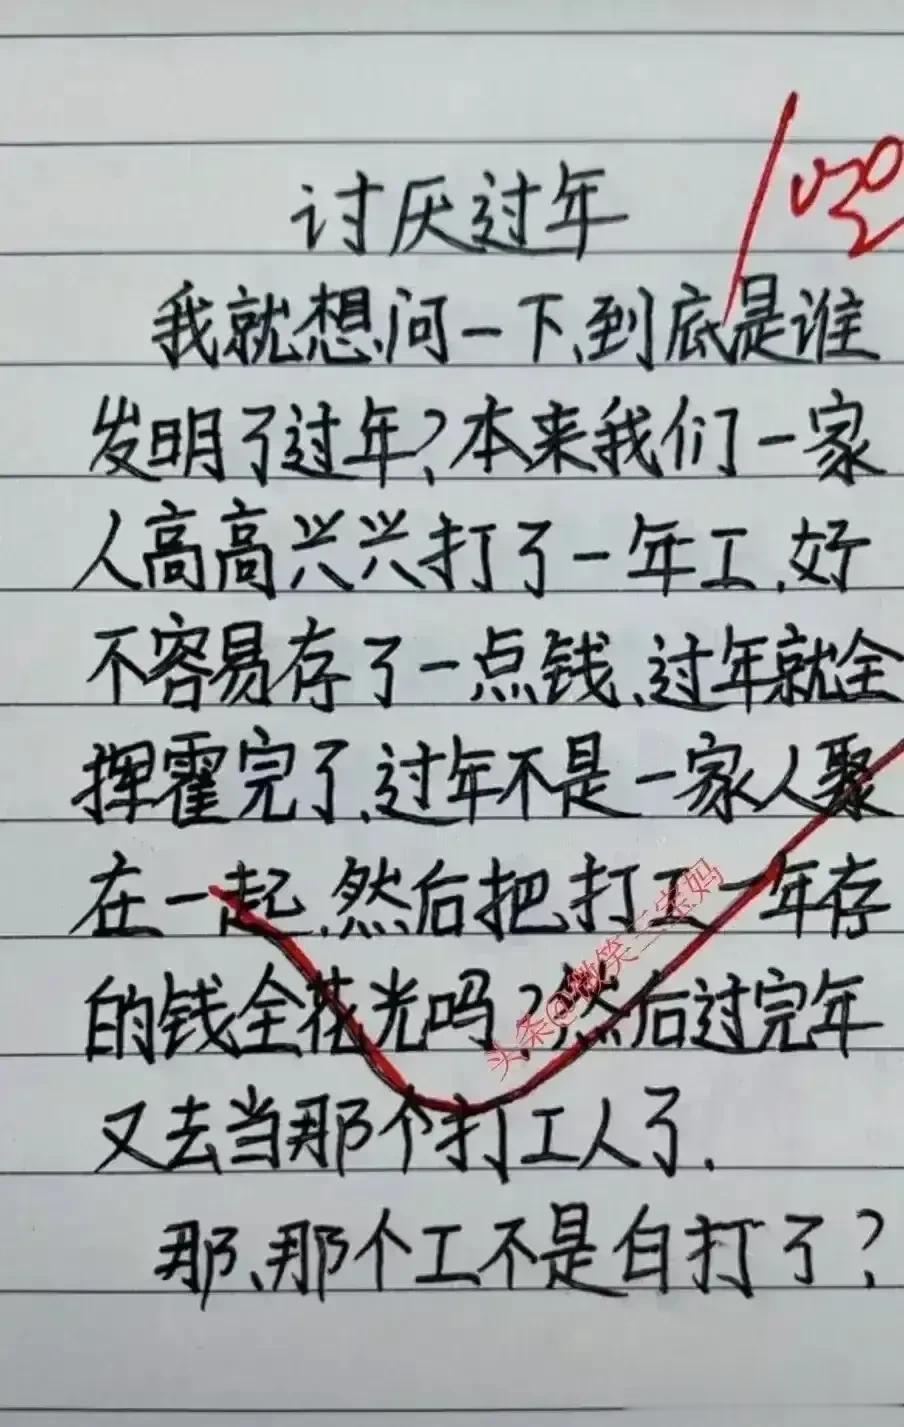 讨厌过年
我就想问一下、到底是谁
发明了过年？本来我们一家
人高高兴兴打了一年工、好
不容易存了一点钱、过年就全
挥霍完了、过年不是一家人聚
在一起、然后把打工一年存
的钱全花光吗？然后过完年
又去当那个打工人了、
那、那个工不是白打了？
头条@微笑三宝妈